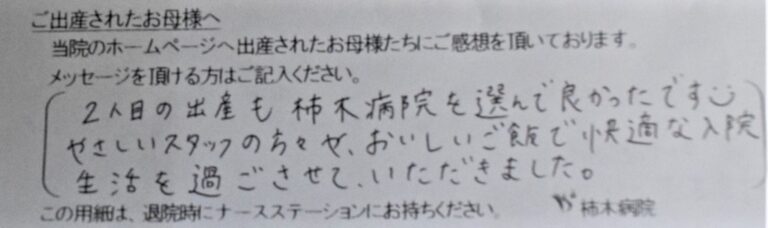 ご出産されたお母様へ
当院のホームページへ出産されたお母様たちにご感想を頂いております。
メッセージを頂ける方はご記入ください。
2人目の出産も柿木病院を選んで良かったです
やさしいスタッフの方々や、おいしいご飯で快適な入院
生活を過ごさせて、いただきました。
この用紙は、退院時にナースステーションにお持ちください。 柿木病院